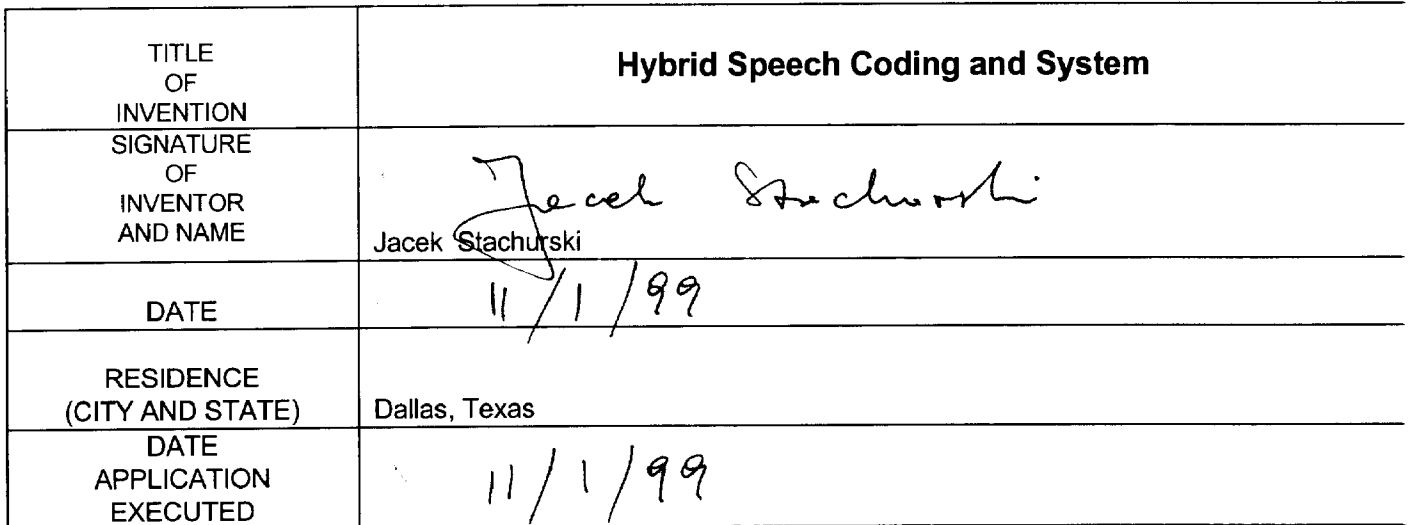 TITLE
OF
INVENTION
Hybrid Speech Coding and System
SIGNATURE
OF
INVENTOR
AND NAME
Jacek Stachurski
Jacek Stachurski
DATE
11/1/99
RESIDENCE
(CITY AND STATE)
Dallas, Texas
DATE
APPLICATION
EXECUTED
11/1/99